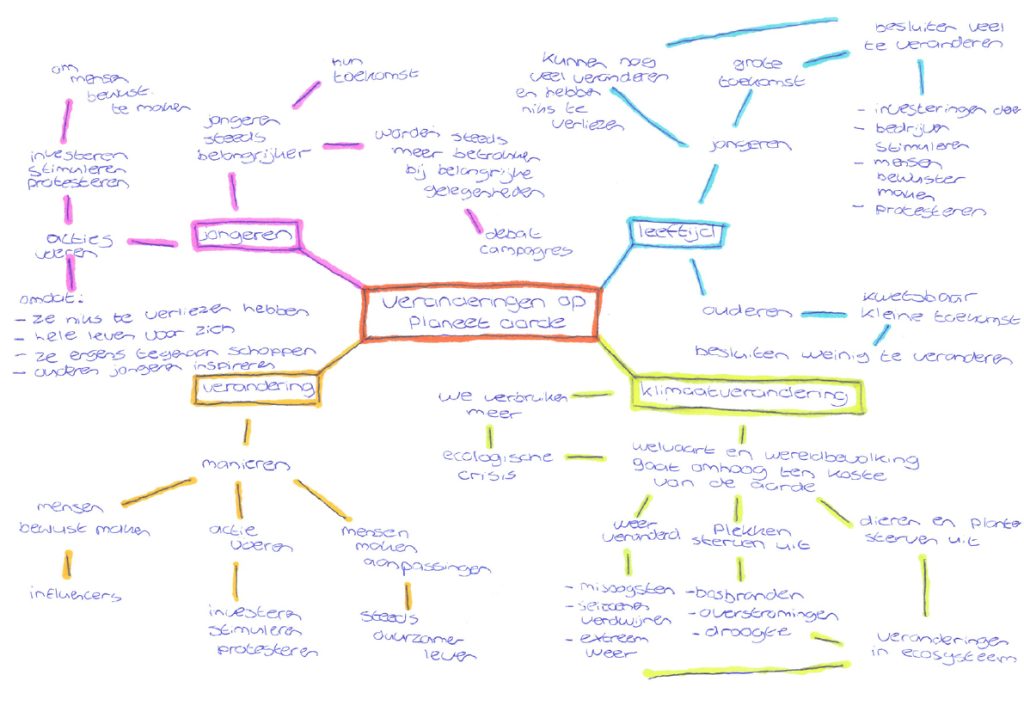 veranderingen op
planeet aarde
jongeren
jongeren
steeds
belangrijker
hun
toekomst
worden steeds
meer betrokken
bij belangrijke
gelegenheden
debat
campagnes
acties
voeren
investeren
stimuleren
protesteren
om
mensen
bewust
te maken
omdat:
- ze niks te verliezen hebben
- hele leven voor zich
- ze ergens tegenaan schoppen
- anderen jongeren inspireren
leeftijd
jongeren
kunnen nog
veel veranderen
en hebben
niks te
verliezen
grote
toekomst
besluiten veel
te veranderen
- investeringen doen
- bedrijven
stimuleren
- mensen
bewuster
maken
- protesteren
ouderen
kwetsbaar
kleine toekomst
besluiten weinig te veranderen
verandering
manieren
mensen
bewust maken
influencers
actie
voeren
investeren
stimuleren
protesteren
mensen
maken
aanpassingen
steeds
duurzamer
leven
klimaatverandering
we verbruiken
meer
ecologische
crisis
welvaart en wereldbevolking
gaat omhoog ten koste
van de aarde
weer
veranderd
- misoogsten
- seizoenen
verdwijnen
- extreem
weer
plekken
sterven uit
- bosbranden
- overstromingen
- droogte
dieren en planten
sterven uit
veranderingen
in ecosysteem